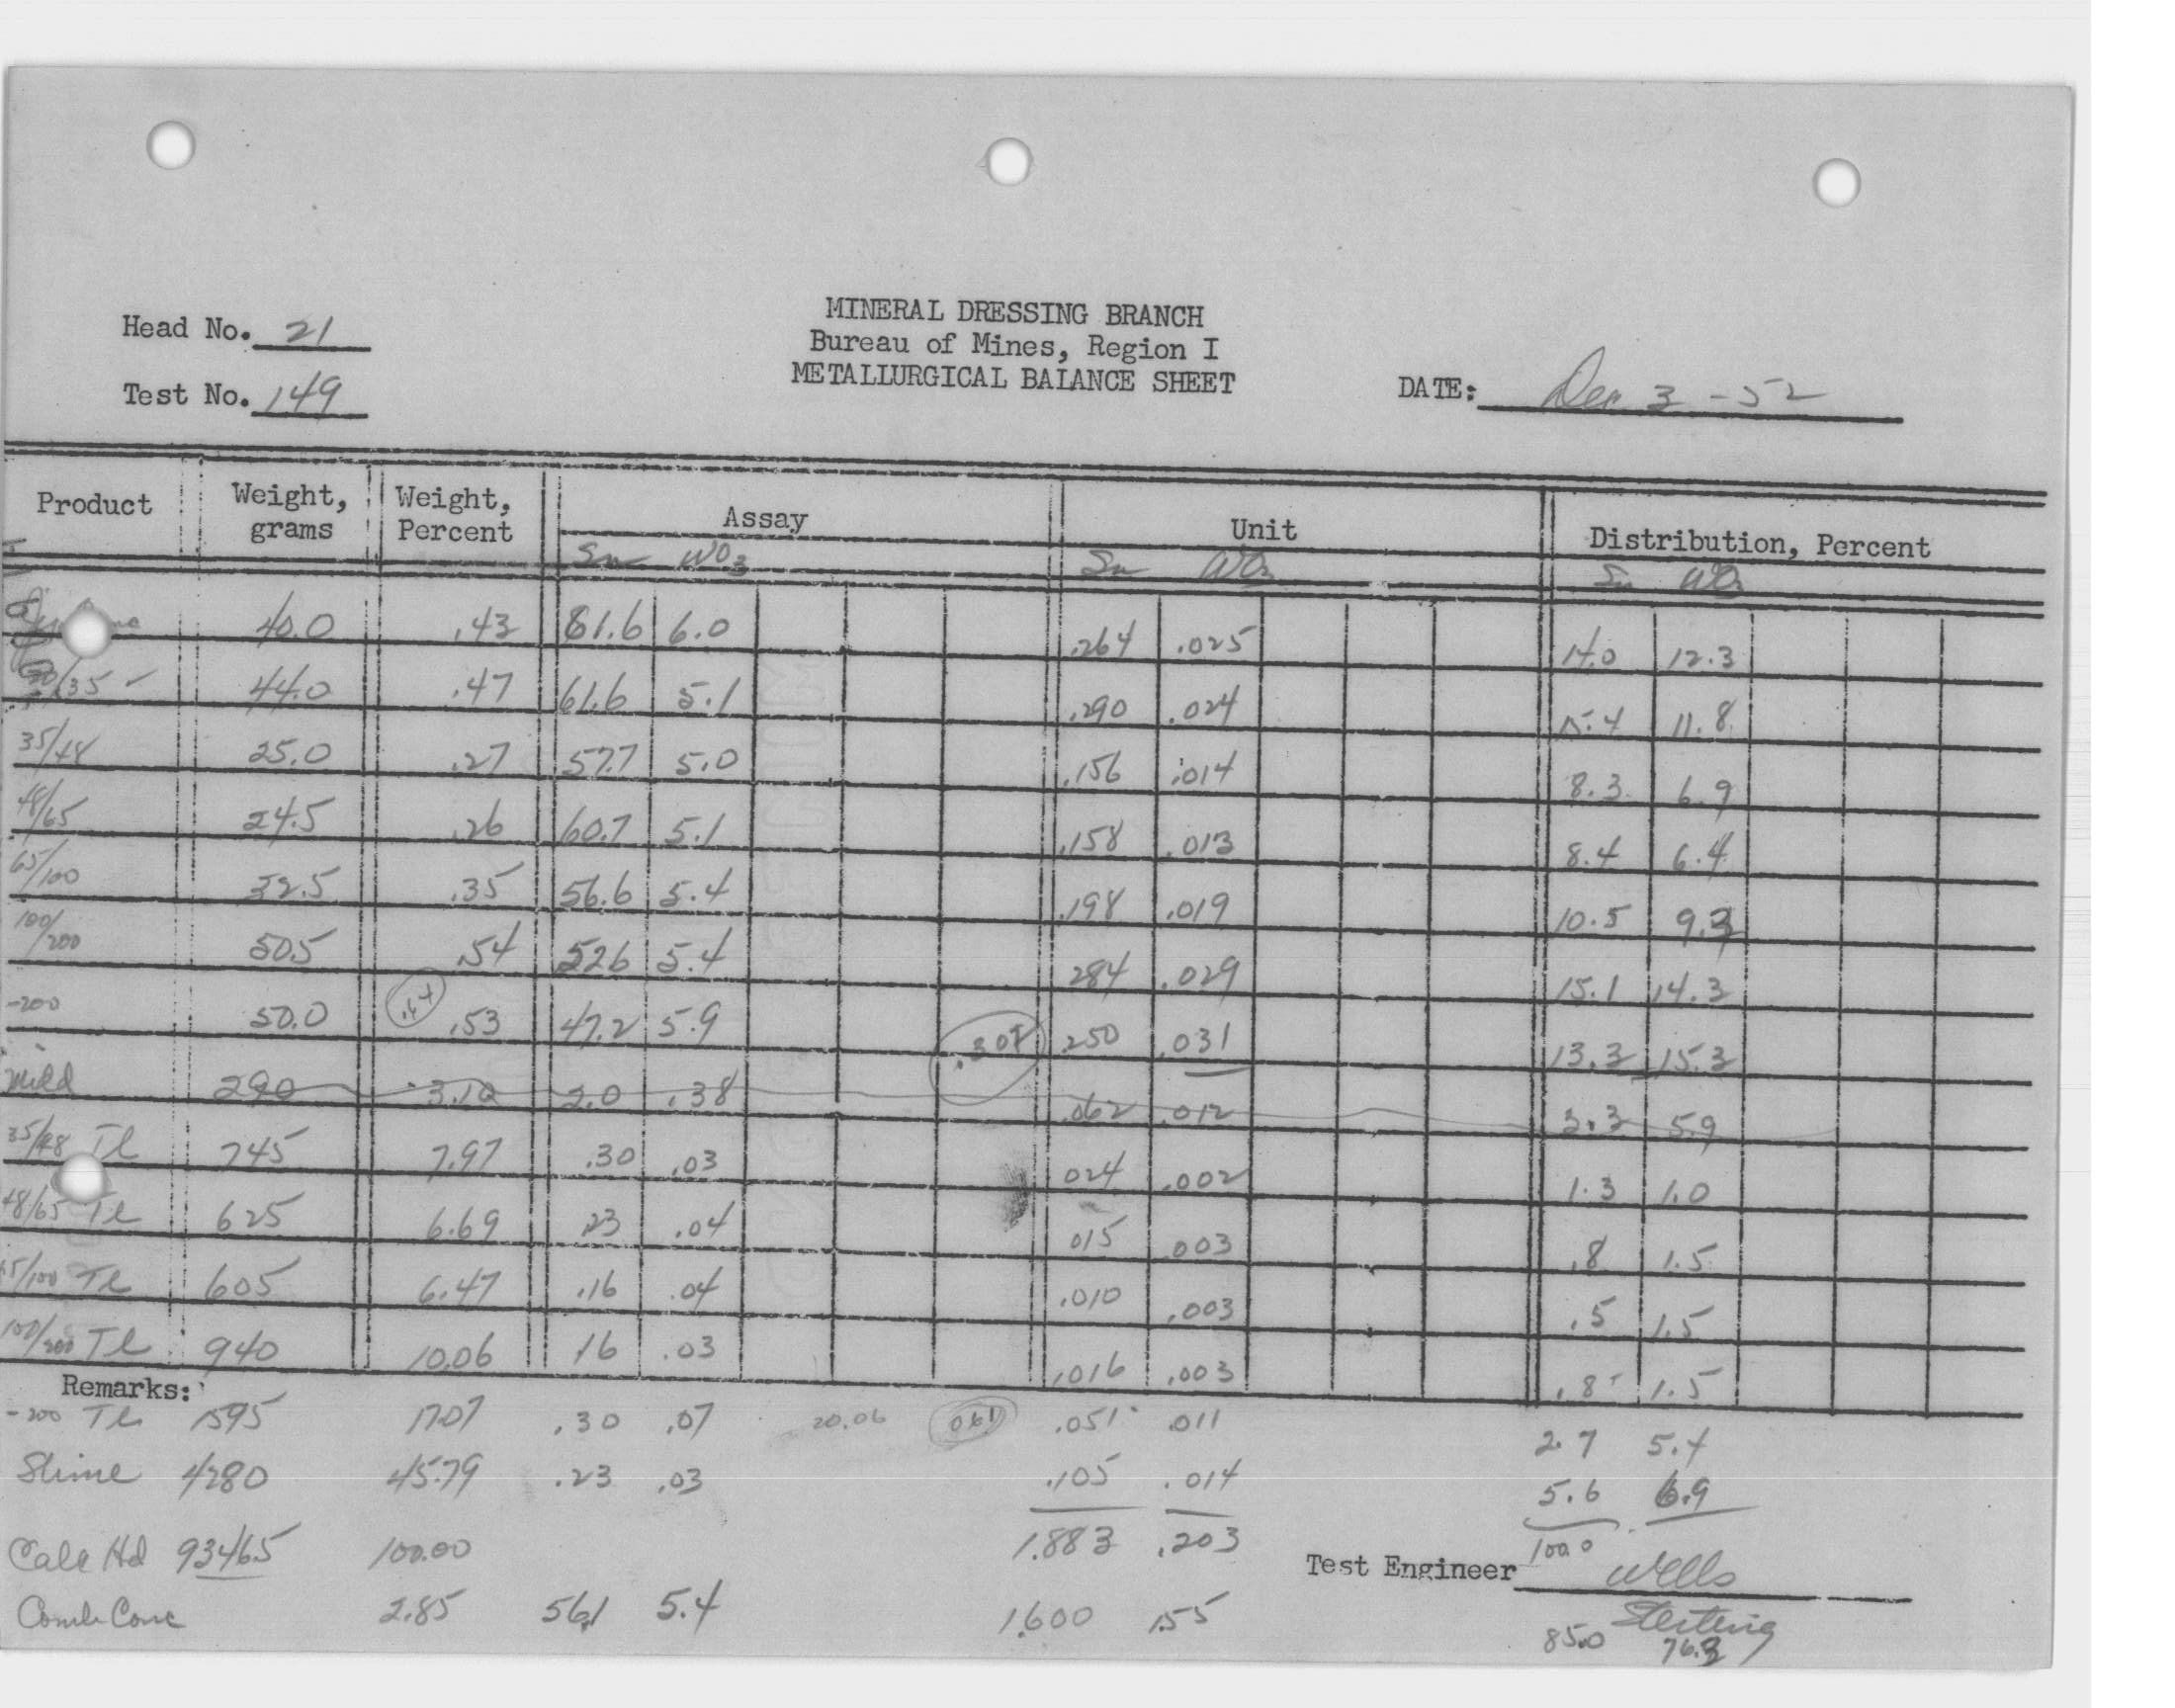 MINERAL DRESSING BRANCH
Head No. 21
Bureau of Mines, Region I
Test No. 149
METALLURGICAL BALANCE SHEET
DATE: Dec 3 - 52
Product Weight, grams Weight, Percent Assay Unit Distribution, Percent
Sn WO3 Sn WO3 Sn WO3
40.0 .43 61.6 6.0 .264 .025 14.0 12.3
/35 44.0 .47 61.6 5.1 .290 .024 15.4 11.8
35/48 25.0 .27 57.7 5.0 .156 .014 8.3 6.9
48/65 24.5 .26 60.7 5.1 .158 .013 8.4 6.4
65/100 32.5 .35 56.6 5.4 .198 .019 10.5 9.3
100/200 50.5 .54 52.6 5.4 .284 .029 15.1 14.3
-200 50.0 .53 47.2 5.9 .250 .031 13.3 15.3
Midd 290 3.10 2.0 .38 .062 .012 3.3 5.9
35/48 Tl 745 7.97 .30 .03 024 .002 1.3 1.0
48/65 Tl 625 6.69 .23 .04 015 .003 .8 1.5
65/100 Tl 605 6.47 .16 .04 .010 .003 .5 1.5
100/200 Tl 940 10.06 16 .03 .016 .003 .8 1.5
Remarks:
-200 Tl 1595 17.07 .30 .07 20.06 061 .051 .011 2.7 5.4
Slime 4280 45.79 .23 .03 .105 .014 5.6 6.9
Calc Hd 9346.5 100.00 1.883 .203 100.0
Test Engineer Wells
Comb Conc 2.85 56.1 5.4 1.600 .155 85.0 76.3